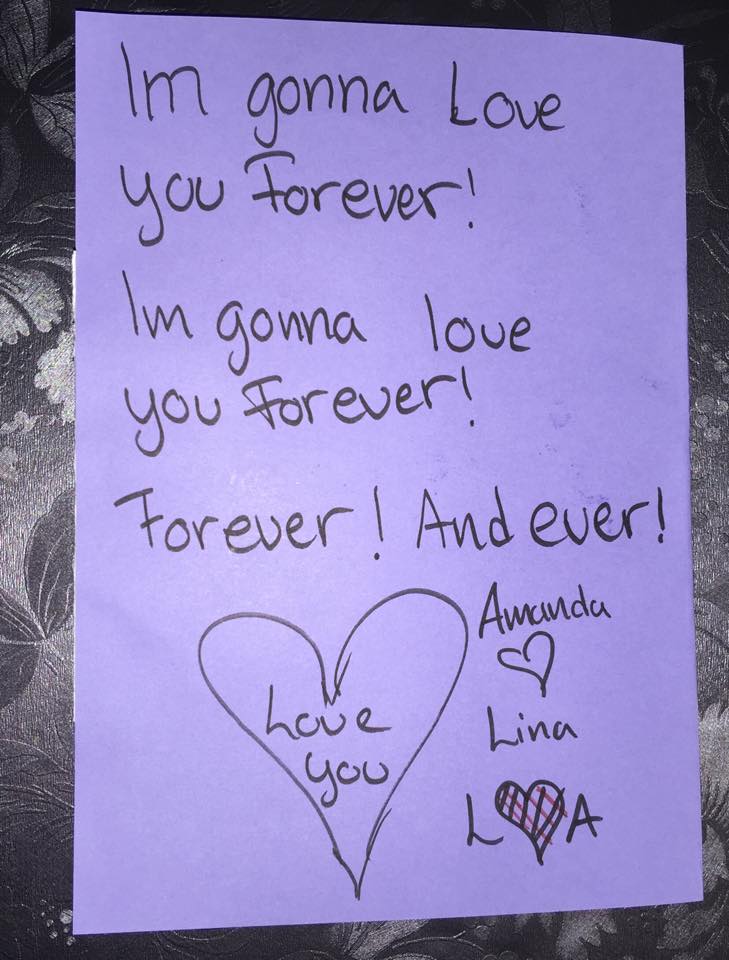 Im gonna Love
you Forever!
Im gonna love
you Forever!
Forever! And ever!
Amanda
Love
you
Lina
L A